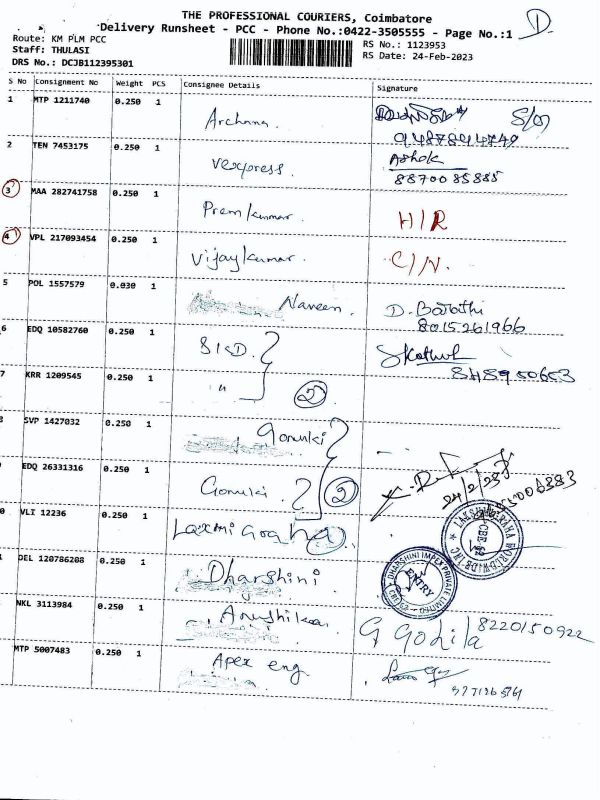 THE PROFESSIONAL COURIERS, Coimbatore
Delivery Runsheet - PCC - Phone No.:0422-3505555 - Page No.:1 D.
Route: KM PLM PCC
RS No.: 1123953
Staff: THULASI
RS Date: 24-Feb-2023
DRS No.: DCJB112395301
S No Consignment No Weight PCS Consignee Details Signature
1 MTP 1211740 0.250 1 Archana. S/o
9487894749
2 TEN 7453175 0.250 1 Vexpress. Ashok
8870085885
3 MAA 282741758 0.250 1 Premkumar. H/R
4 VPL 217093454 0.250 1 Vijaykumar. C/N.
5 POL 1557579 0.030 1 Naveen. D. Barathi
8015261966
6 EDQ 10582760 0.250 1
7 KRR 1209545 0.250 1 " 2
SVP 1427032 0.250 1
EDQ 26331316 0.250 1 2
24/2/23
0 VLI 12236 0.250 1 Laxmi
DEL 120786208 0.250 1 Dharshini
DHARSHINI IMPEX PRIVATE LIMITED
ENTRY
NKL 3113984 0.250 1 G Gokila 8220150922
MTP 5007483 0.250 1 Apex eng